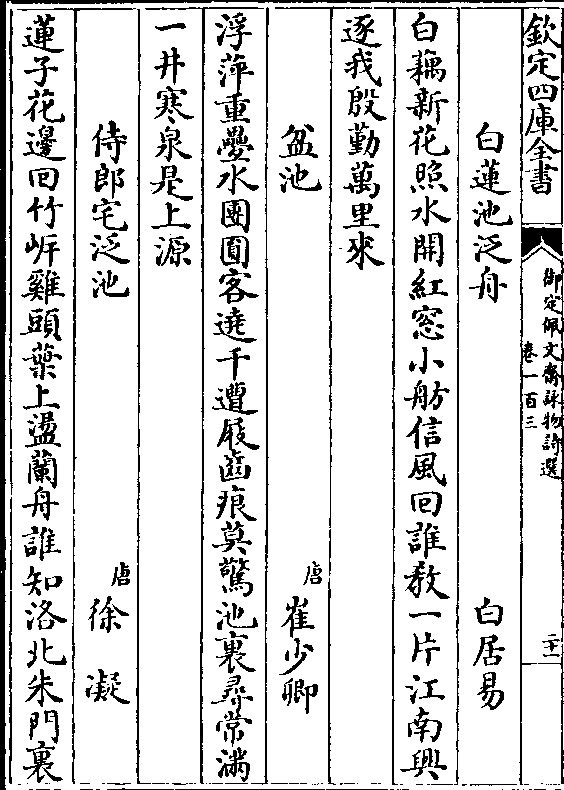 欽定四庫全書
御定佩文齋詠物詩選
卷一百三
二十一
白蓮池泛舟 白居易
白藕新花照水開紅窓小舫信風回誰教一片江南興
逐我殷勤萬里來
盆池 唐 崔少卿
浮萍重疊水團圓客遶千遭屐齒痕莫驚池裏尋常滿
一井寒泉是上源
侍郎宅泛池 唐 徐凝
蓮子花邊回竹岸雞頭葉上盪蘭舟誰知洛北朱門裏